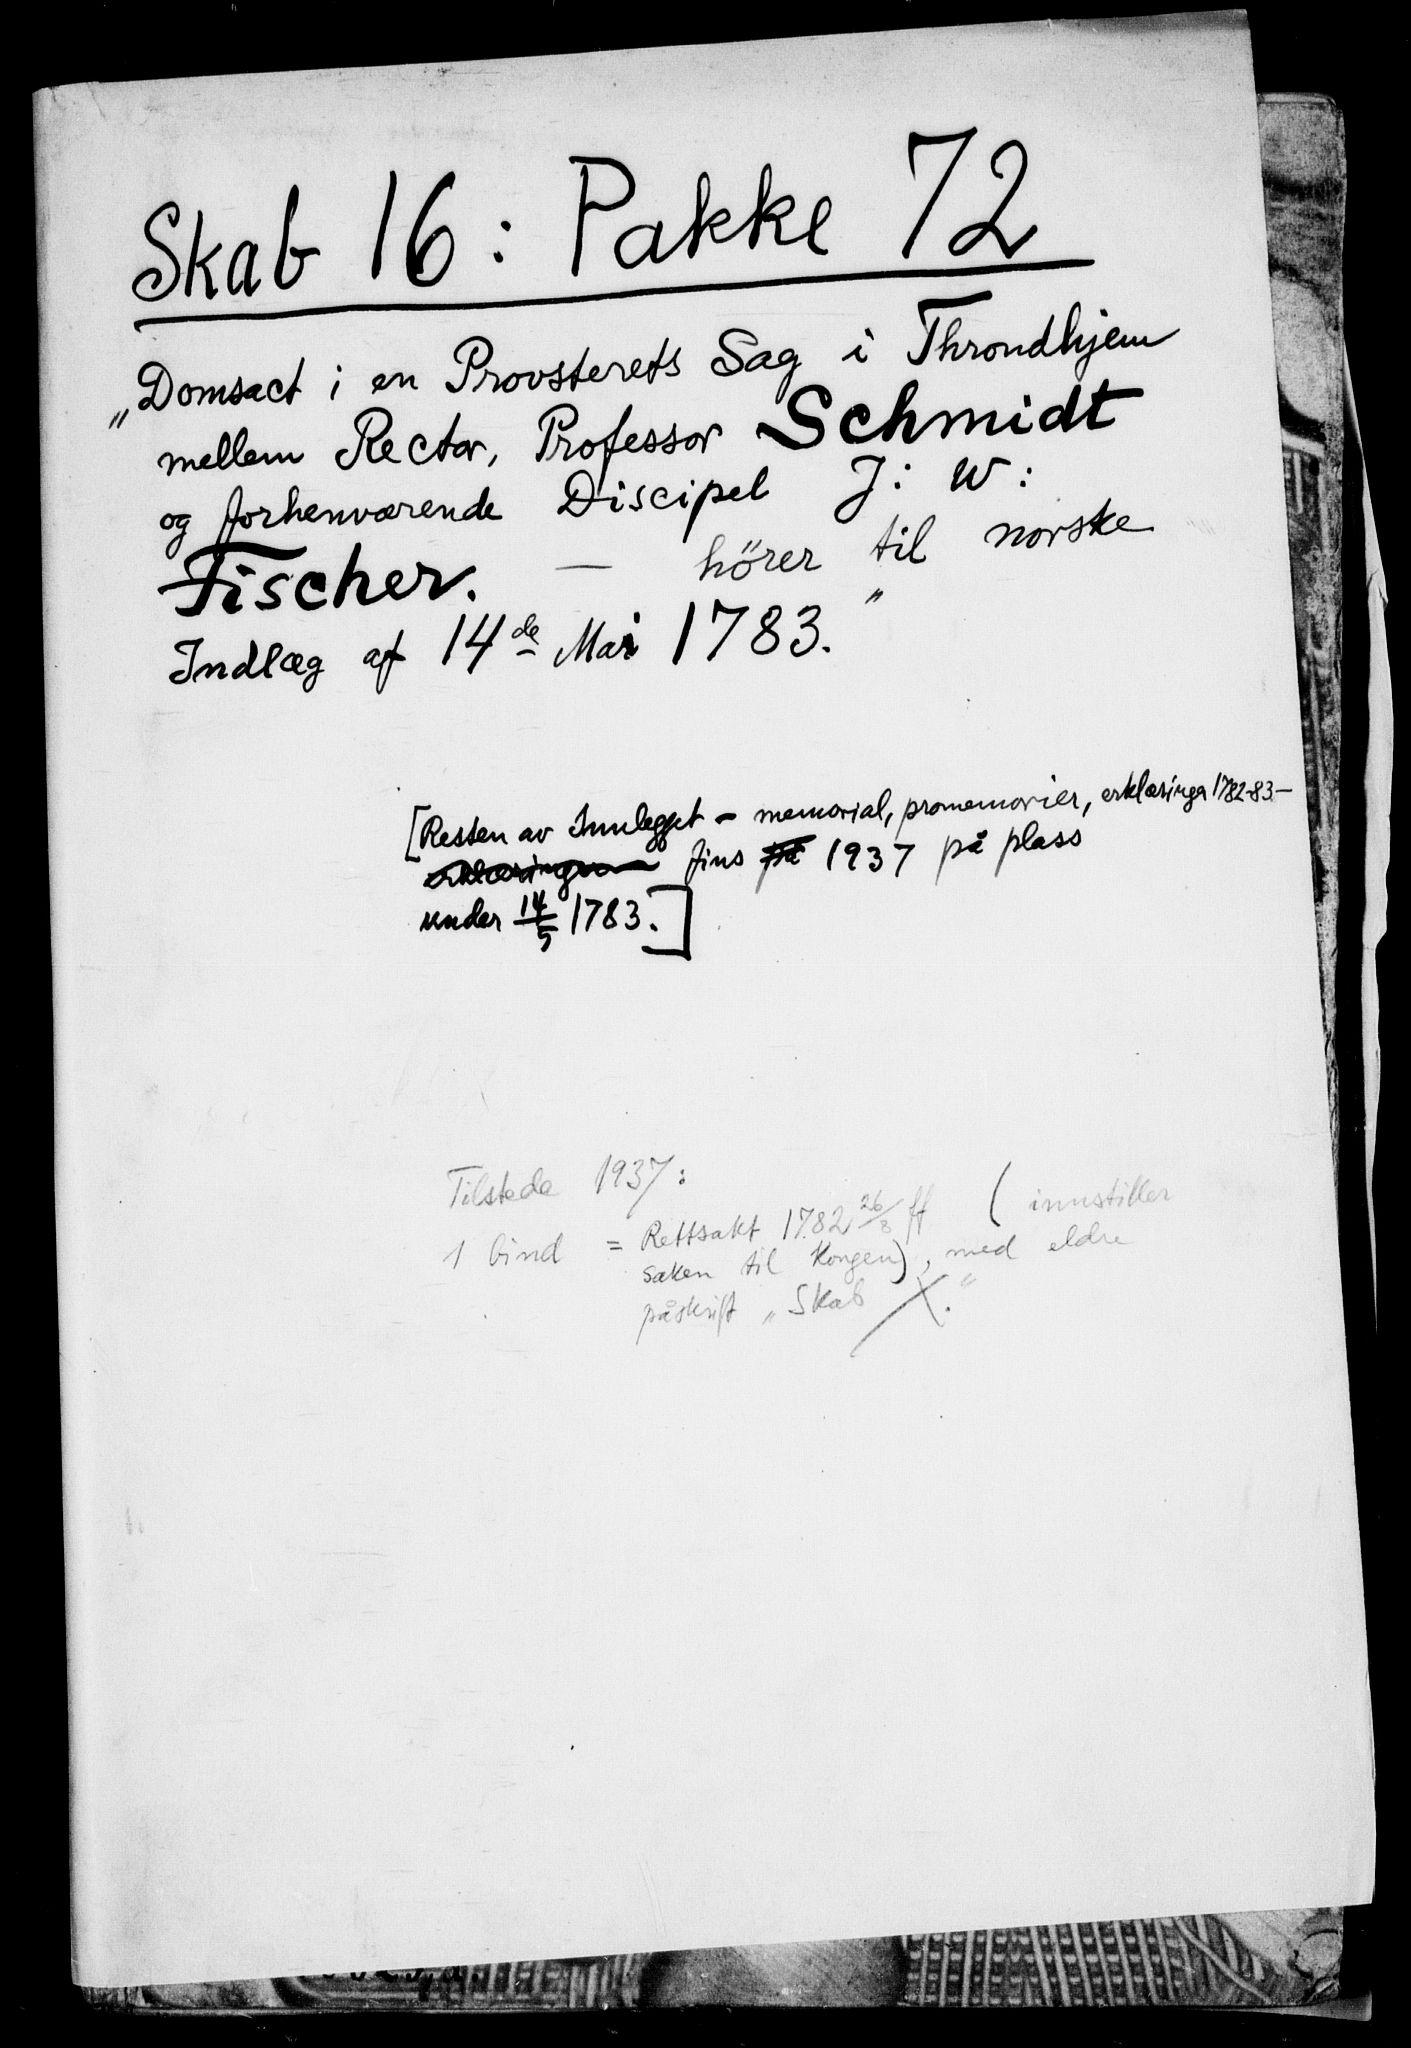 Skab 16: Pakke 72
„Domsact i en Provsterets Sag i Throndhjem
mellem Rector, Professor Schmidt
og forhenværende Discipel J: W:
Fischer. — hörer til norske
Indlæg af 14de Mai 1783."
[Resten av Innlegget - memorial, promemorier, erklæringa 1782-83.-
erklæringen fins på 1937 på plass
under 14/5 1783.]
Tilstede 1937:
1 bind = Rettsakt 1782 26/8 ff (innstiller
saken til Kongen), med eldre
påskrift „Skab X."